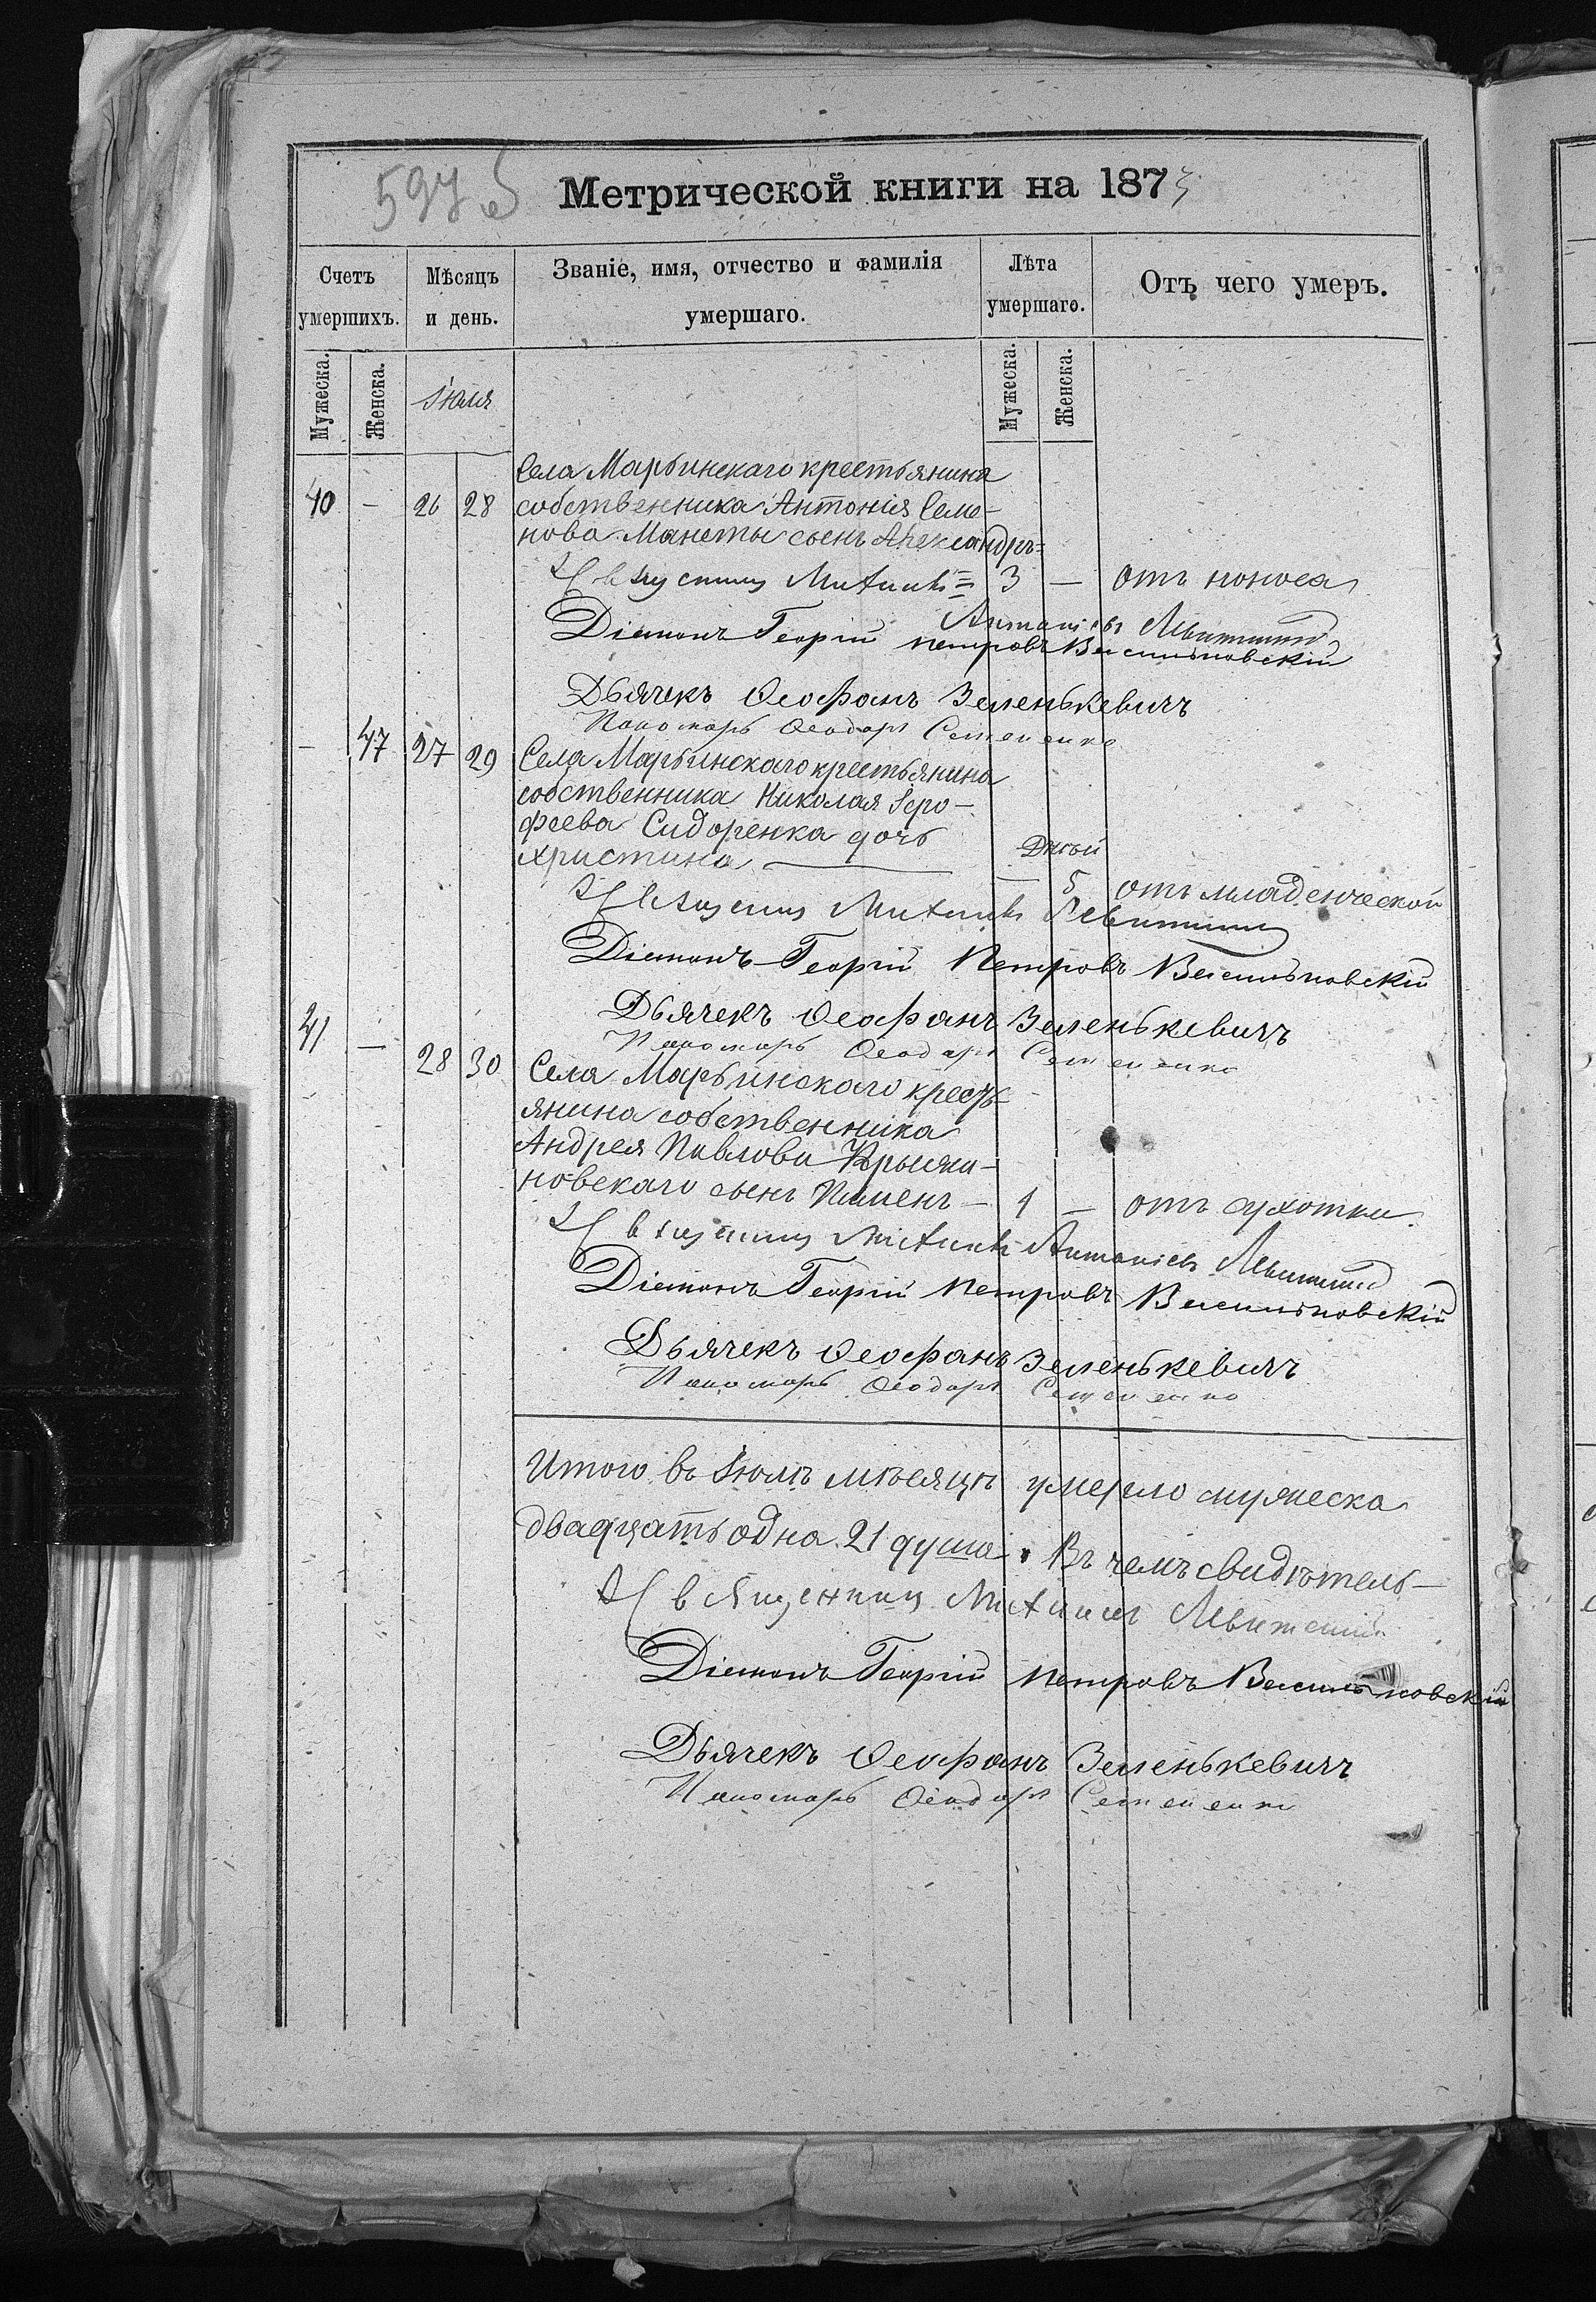 Метрической книги на 1873
Счетъ умершихъ. Мѣсяцъ и день. Званіе, имя, отчество и фамилія умершаго. Лѣта умершаго. Отъ чего умеръ.
Мужеска. Женска. Іюля Мужеска. Женска.
Села Марьинскаго крестьянина
40 — 26 28 собственника Антонія Семе-
нова Манеты сынъ Александръ=
Священникъ Михаилъ = 3 — отъ поноса
Діаконъ Георгій Петровъ Васильковскій
Дьячекъ Ѳеофанъ Зеленькевичъ
Пономарь Ѳеодоръ Семененко
— 47 27 29 Села Марьинскаго крестьянина
собственника Николая Іеро-
феева Сидоренка дочь
Христина — Дней
— 5 отъ младенческой
Священникъ Михаилъ
Діаконъ Георгій Петровъ Васильковскій
Дьячекъ Ѳеофанъ Зеленькевичъ
Пономарь Ѳеодоръ Семененко
41 — 28 30 Села Марьинскаго кресть-
янина собственника
Андрея Павлова Крыжа-
новскаго сынъ Пименъ — 1 — отъ сухотки.
Священникъ Михаилъ
Діаконъ Георгій Петровъ Васильковскій
Дьячекъ Ѳеофанъ Зеленькевичъ
Пономарь Ѳеодоръ Семененко
Итого въ Іюлѣ мѣсяцѣ умерло мужеска
двадцать одна 21 душа. Въ чемъ свидѣтель-
Священникъ Михаилъ
Діаконъ Георгій Петровъ Васильковскій
Дьячекъ Ѳеофанъ Зеленькевичъ
Пономарь Ѳеодоръ Семененко